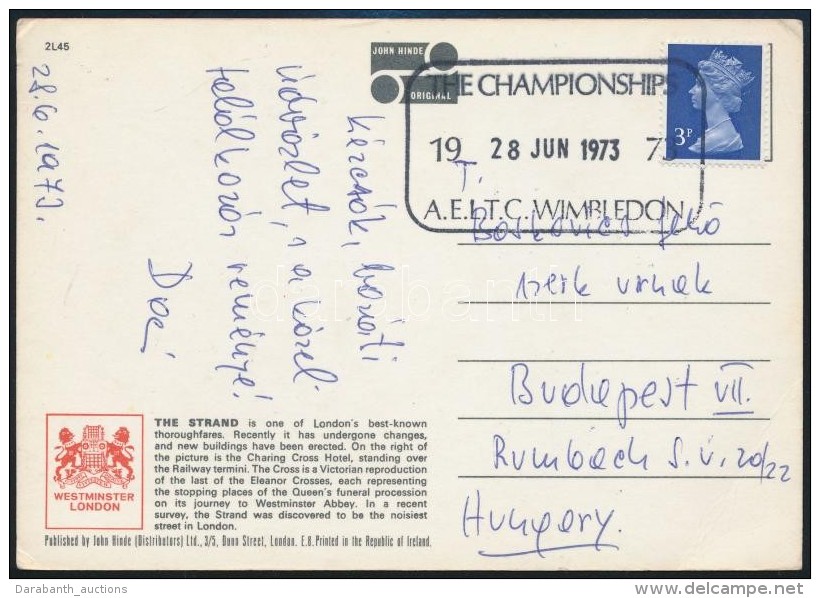 2L45
JOHN HINDE
ORIGINAL
THE CHAMPIONSHIPS
19 28 JUN 1973 73
A.E.L.T.C. WIMBLEDON
3P
28.6.1973.
Kézcsók, baráti
üdvözlet, s a közeli
találkozás reménye!
T.
Boskovics Jenő
szerk úrnak
Budapest VII.
Rumbach S. u. 20/22
Hungary.
darabanth
WESTMINSTER
LONDON
THE STRAND is one of London's best-known
thoroughfares. Recently it has undergone changes,
and new buildings have been erected. On the right of
the picture is the Charing Cross Hotel, standing over
the Railway termini. The Cross is a Victorian reproduction
of the last of the Eleanor Crosses, each representing
the stopping places of the Queen's funeral procession
on its journey to Westminster Abbey. In a recent
survey, the Strand was discovered to be the noisiest
street in London.
Published by John Hinde (Distributors) Ltd., 3/5, Dunn Street, London. E.8. Printed in the Republic of Ireland.
Darabanth_auctions
www.delcampe.net